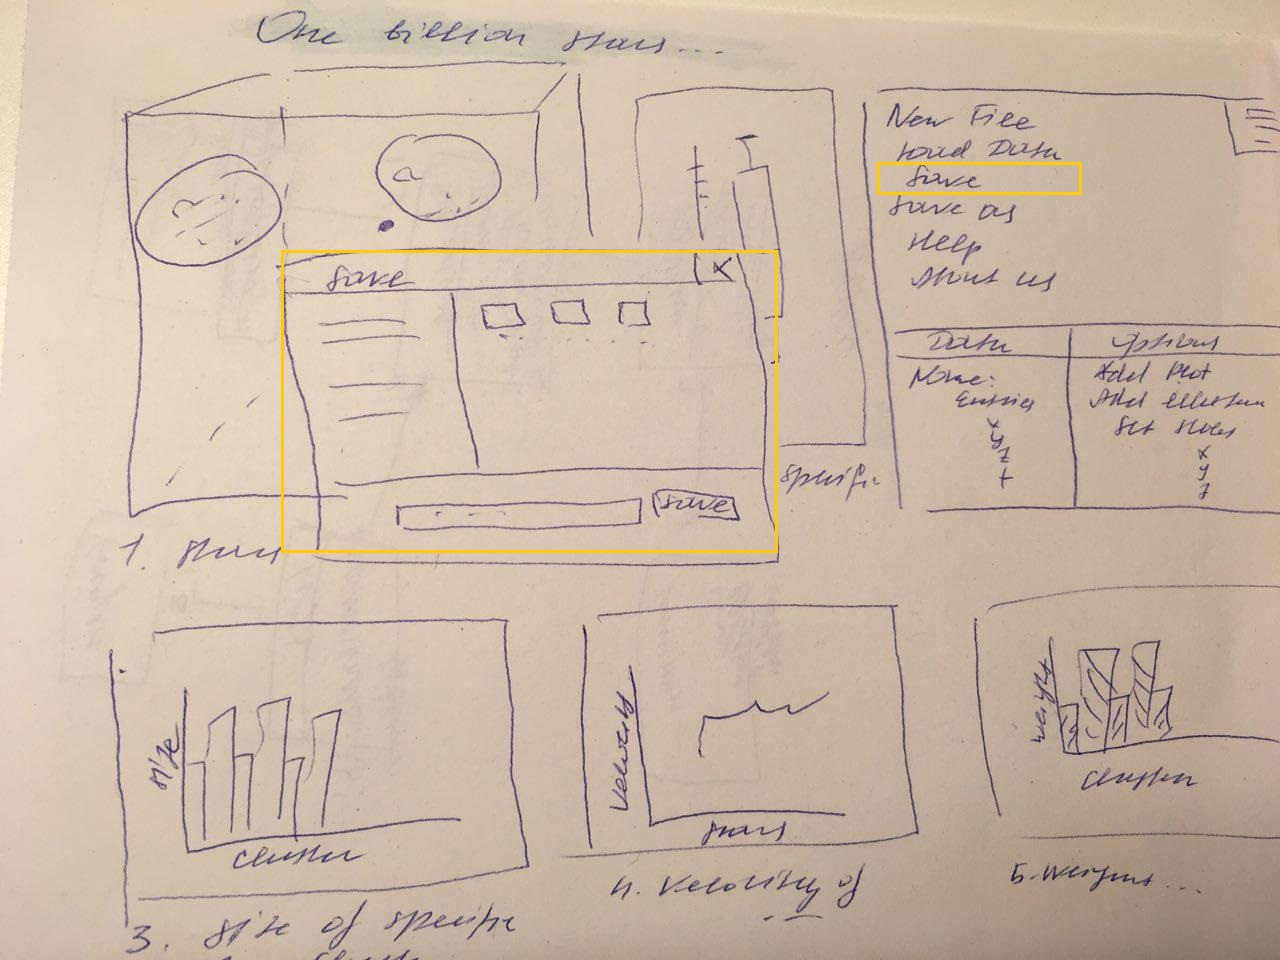 One billion stars...
New File
Load Data
Save
Save as
Help
About us
Save X
Save
Data
Name:
Entries
x
y
z
t
Options
Add Plot
Add
Set
x
y
z
1. Stars
specific
Size
Cluster
3. Size of specific
Velocity
Stars
4. Velocity of
Weight
Cluster
5. Weight...